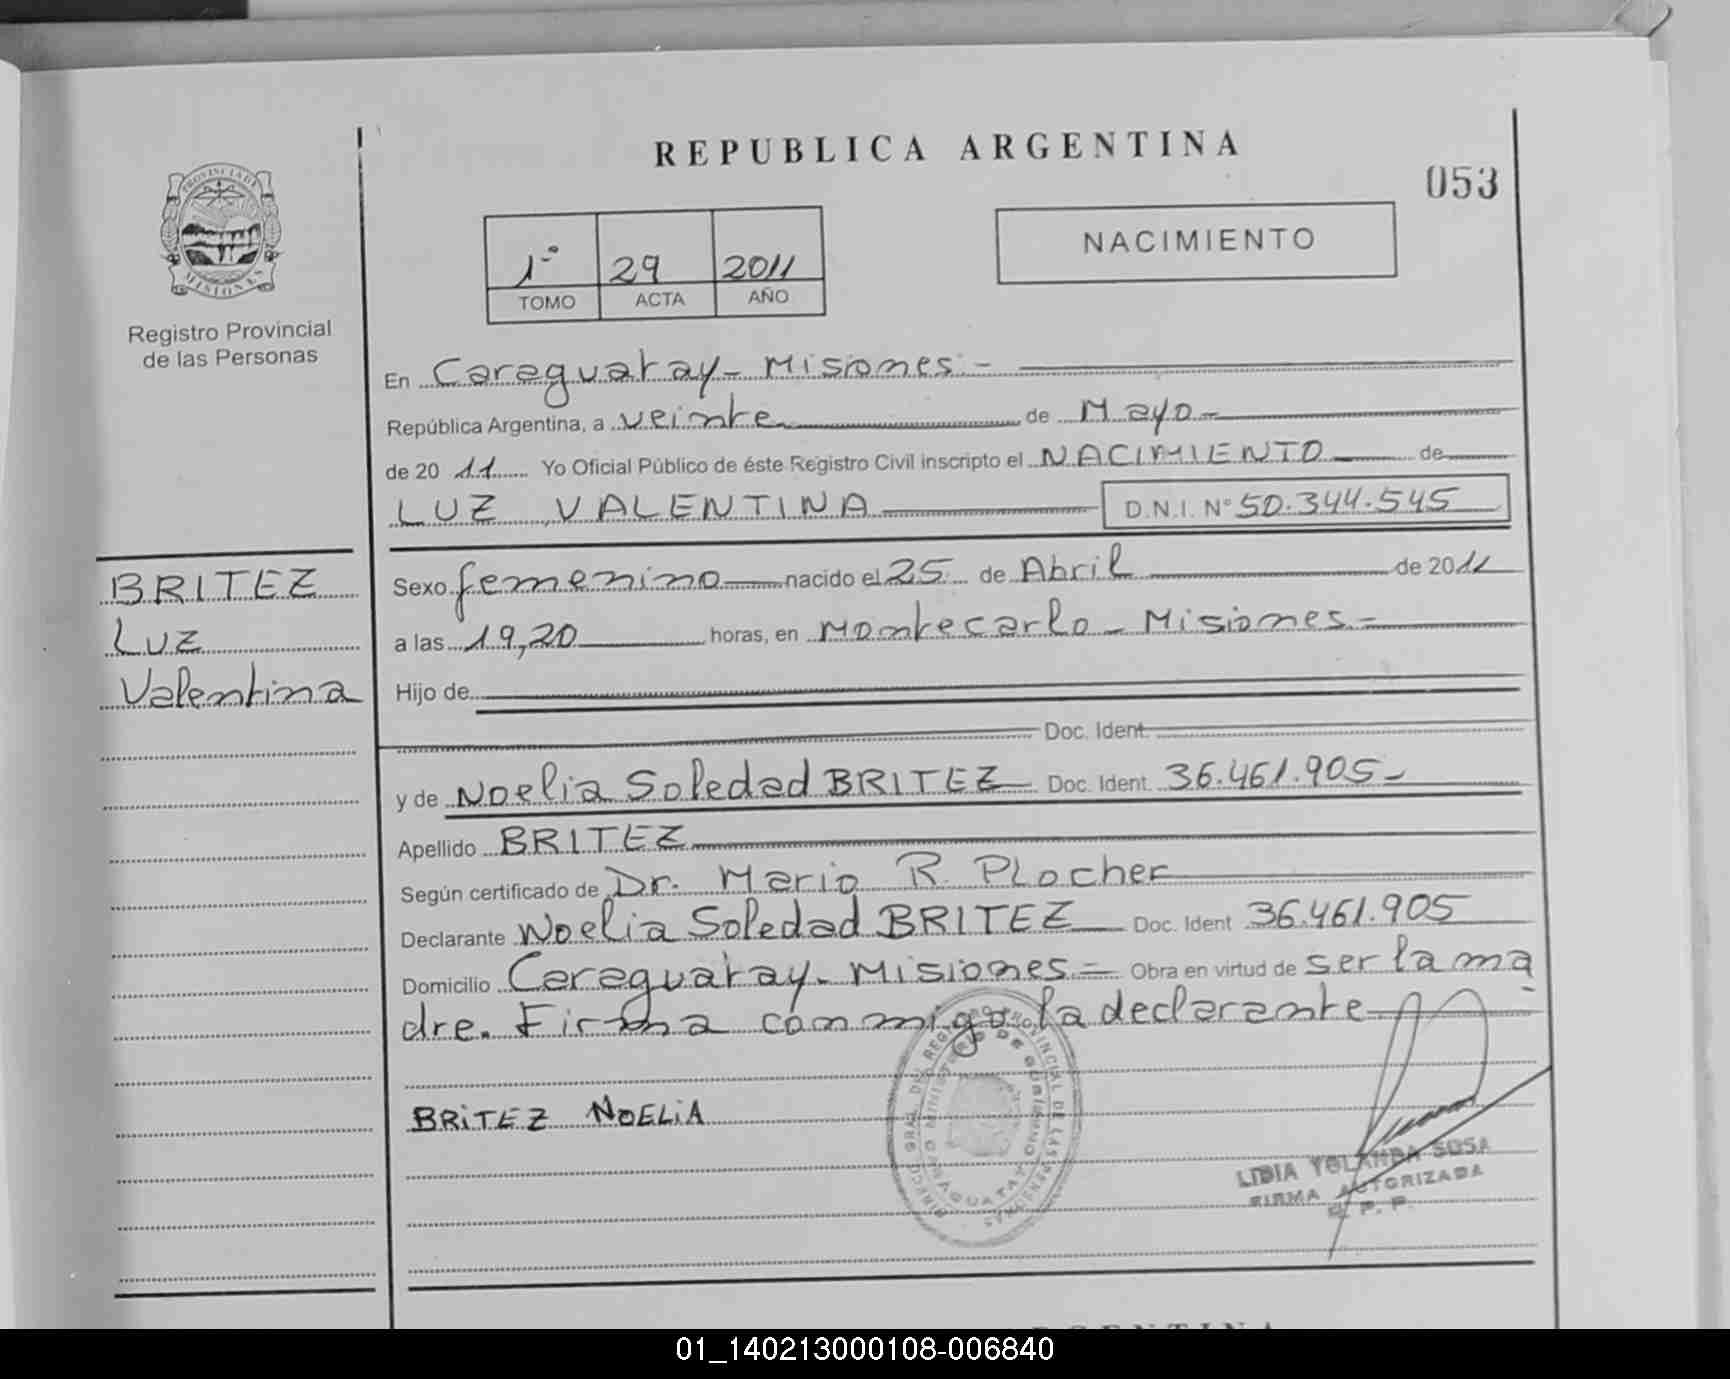 REPUBLICA ARGENTINA
053
PROVINCIA DE
MISIONES
Registro Provincial
de las Personas
1º 29 2011
TOMO ACTA AÑO
NACIMIENTO
En Caraguatay - Misiones -
República Argentina, a veinte de Mayo -
de 20 11 Yo Oficial Público de éste Registro Civil inscripto el NACIMIENTO de
LUZ VALENTINA D.N.I. Nº 50.344.545
BRITEZ
Luz
Valentina
Sexo femenino nacido el 25 de Abril de 2011
a las 19,20 horas, en Montecarlo - Misiones -
Hijo de
Doc. Ident.
y de Noelia Soledad BRITEZ Doc. Ident. 36.461.905-
Apellido BRITEZ
Según certificado de Dr. Mario R. PLocher
Declarante Noelia Soledad BRITEZ Doc. Ident 36.461.905
Domicilio Caraguatay - Misiones = Obra en virtud de ser la ma
dre. Firma conmigo la declarante
BRITEZ NOELIA
LIDIA YOLANDA SOSA
FIRMA AUTORIZADA
R. P. P.
01_140213000108-006840